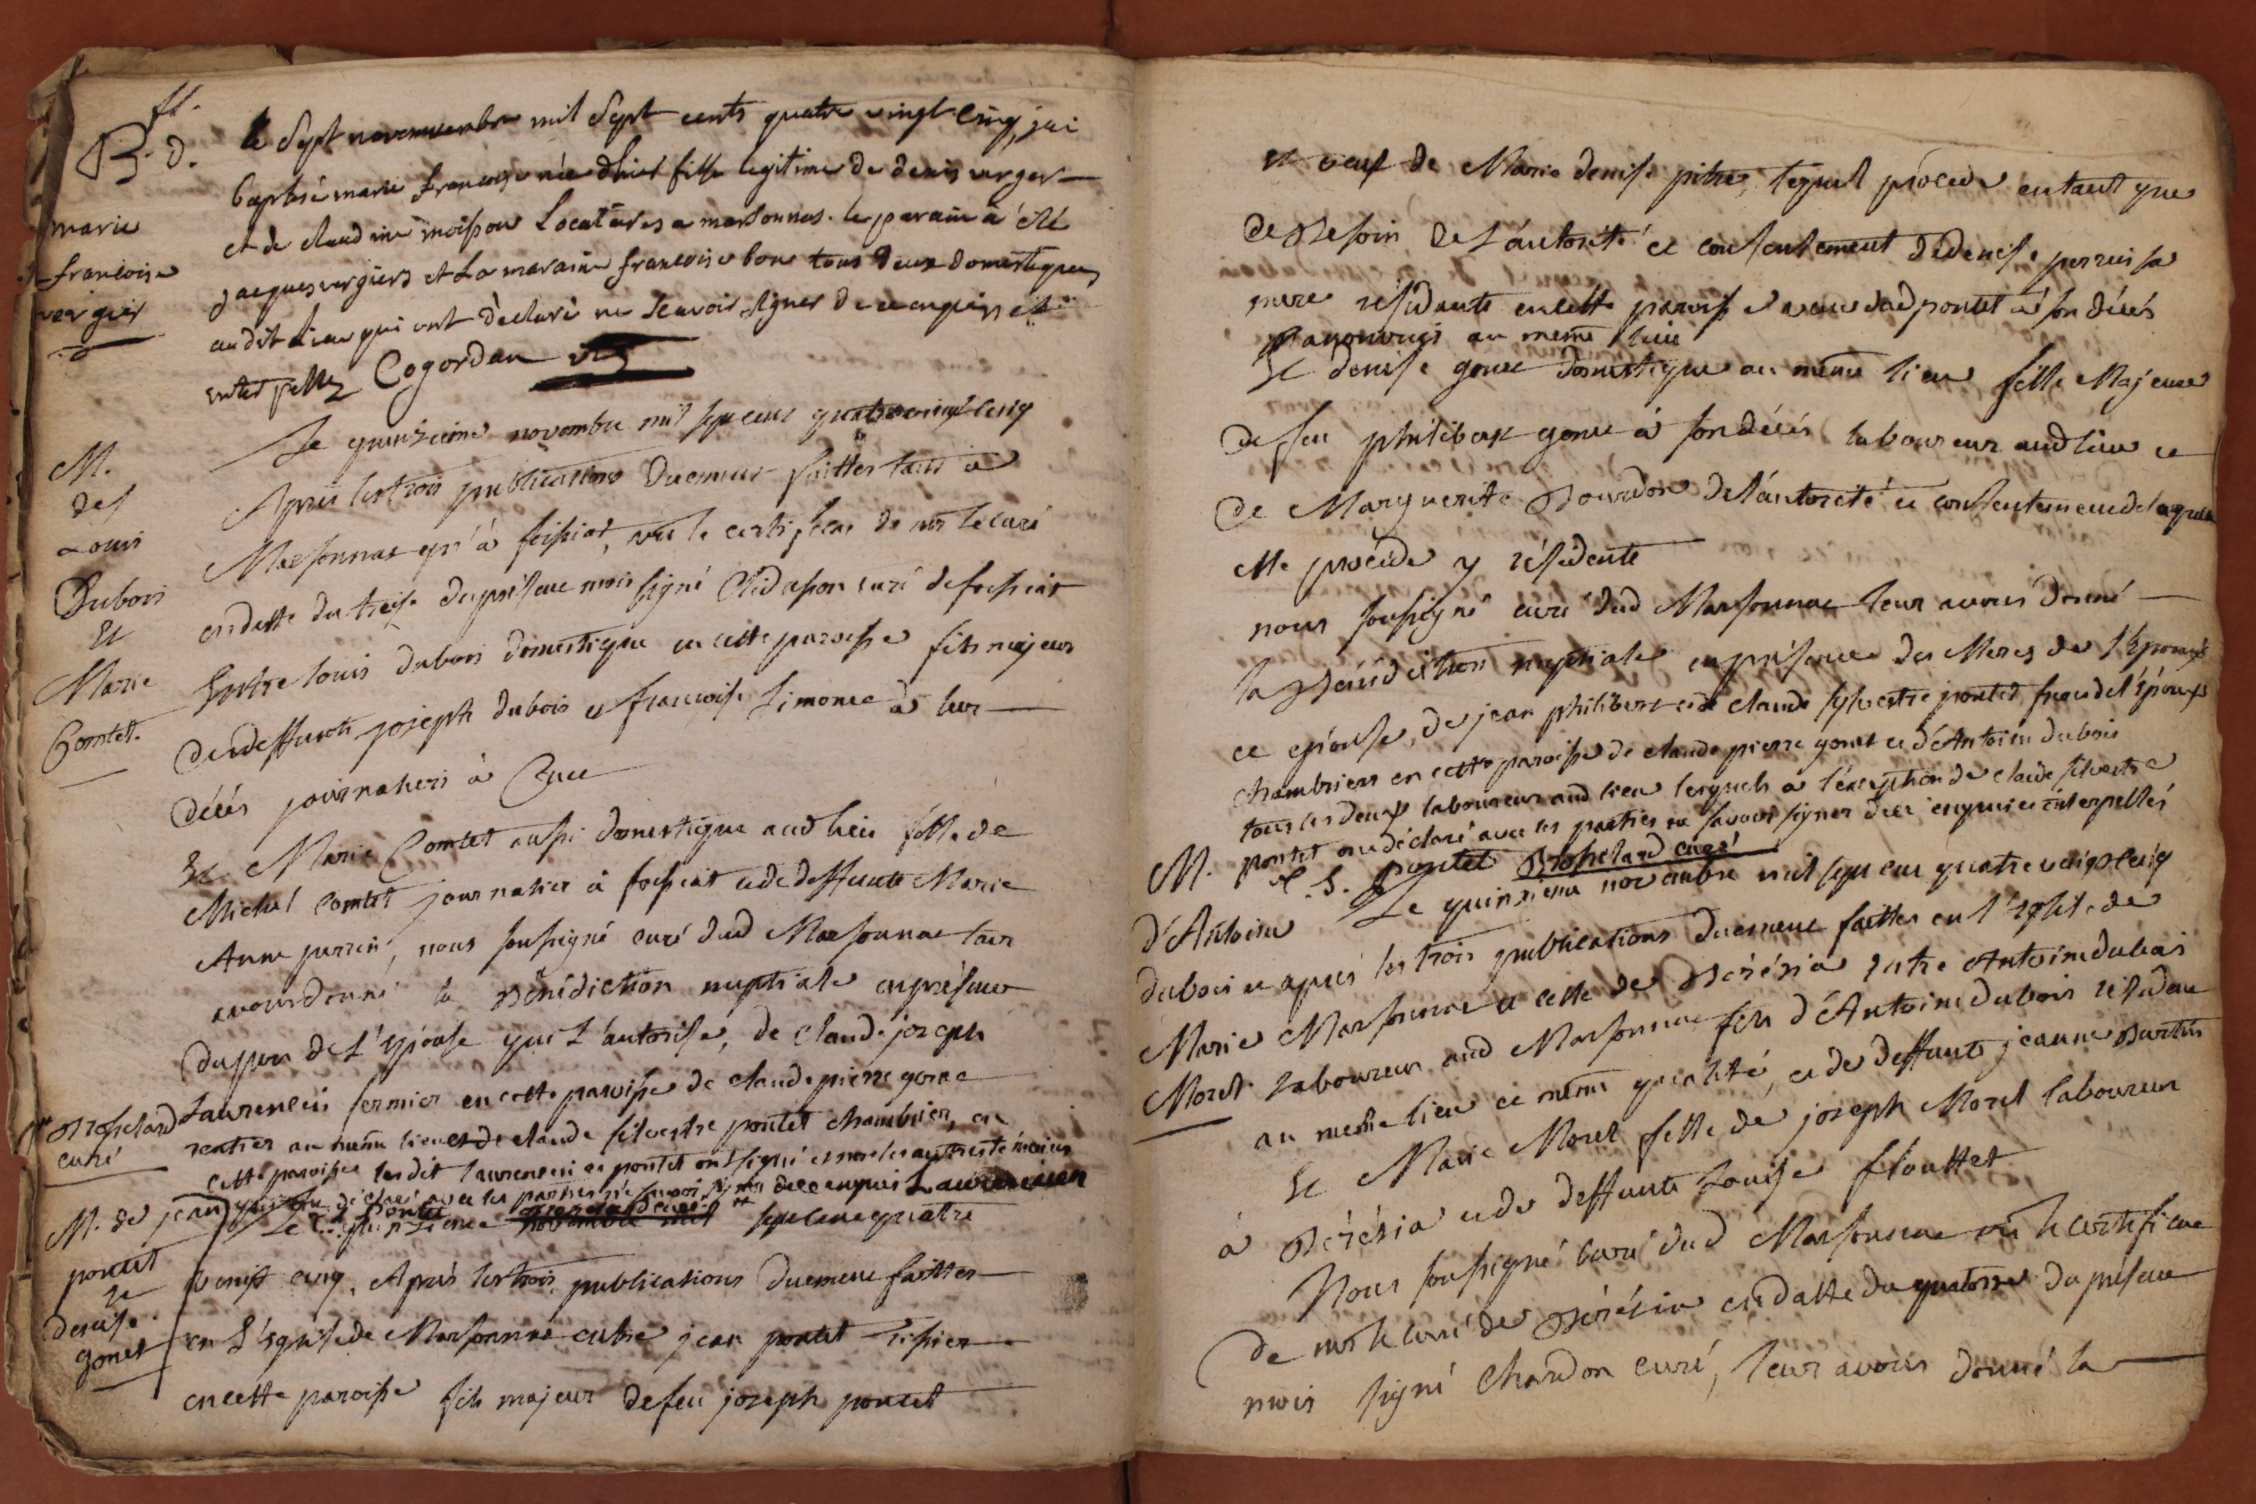 fl.
B. d.
marie
francoise
vergier
le Sept novemember mil Sept cents quatre vingt cinq, jai
baptisé marie francoise née d'hier fille legitime de denis verger
et de claudine moisson Locataires a marsonnas. le parain a été
jacques vergiers et la maraine francoise bon tous deux domestiques
audit Lieu qui ont déclaré ne scavoir signer de ce enquis et
interpellés Cogordan vic
M.
de
Louis
Dubois
Et
Marie
Comtet.
Le quinzieme novembre mil sept cent quatre vingt cinq
Après les trois publications duement faittes tant à
Marsonnat qu'à foissiat, vu le certificat de mr le curé
en datte du treise du présent mois signé curé de foissiat
Entre louis dubois domestique en cette paroisse fils majeur
des deffunts joseph dubois et francoise Limonet à leur
décés journaliers à
Et Marie Comtet aussi domestique aud lieu fille de
Michel comtet journalier à foissiat et de deffunte Marie
Anne perrin, nous soussigné curé dud Marsonnat leur
avons donné la Bénédiction nuptiale en présence
du pere de L'épouse qui L'autorise, de claude joseph
Laurencin fermier en cette paroisse de claude pierre gonet
rentier au même lieu et de claude silvestre pontet chambrier, en
cette paroisse lesdit laurencin et pontet ont signé et non les autres témoins
qui ont déclaré avec les parties ne savoir signer de ce enquis Laurencin
Brosselard
curé
M. de jean
pontet
et
denise
gonet
Le quinzieme novembre mil sept cent quatre
vingt cinq, Après les trois publications duement faittes
en L'eglise de Marsonnas entre jean pontet
en cette paroisse fils majeur de feu joseph pontet
et veuf de Marie denise pitre, lequel procede en tant que
de Besoin de L'autorité et consentement de denise perruisa
mere résidante en cette paroisse veuve dud pontet à son décés
au même lieu
Et denise gonet domestique au même lieu fille Majeure
de feu philibert gonet à son décés laboureur aud lieu et
de Marguerite Bourdon de l'autorité et consentement de laquelle
elle procéde y résidente
nous soussigné curé dud Marsonnat leur avons donné
la Bénédiction nuptiale en présence des Meres de l'Epoux
et epouse, de jean philibert et de claude sylvestre pontet frere de l'époux
chambriers en cette paroisse de claude pierre gonet et d'Antoine dubois
tous les deux laboureurs aud lieu lesquels à l'exeption de claude silvestre
pontet ont déclaré avec les parties ne savoir signer de ce enquis et interpellés
C. S. pontet Brosselard curé
M.
d'Antoine
dubois et
Marie
Morel
Le quinzieme novembre mil sept cent quatre vingt cinq
après les trois publications duement faittes en l'église de
Marsonnat et celle de Béréziat entre Antoine dubois
Laboureur aud Marsonnat fils d'Antoine dubois résidant
au même lieu et même qualité, et de deffunte jeanne
Et Marie Morel fille de joseph Morel laboureur
à Béréziat et de deffunte Louise flouttet
Nous soussigné curé dud Marsonnat vu le certificat
de mr le curé de Béréziat en datte du quatorze du présent
mois signé chardon curé, leur avons donné la